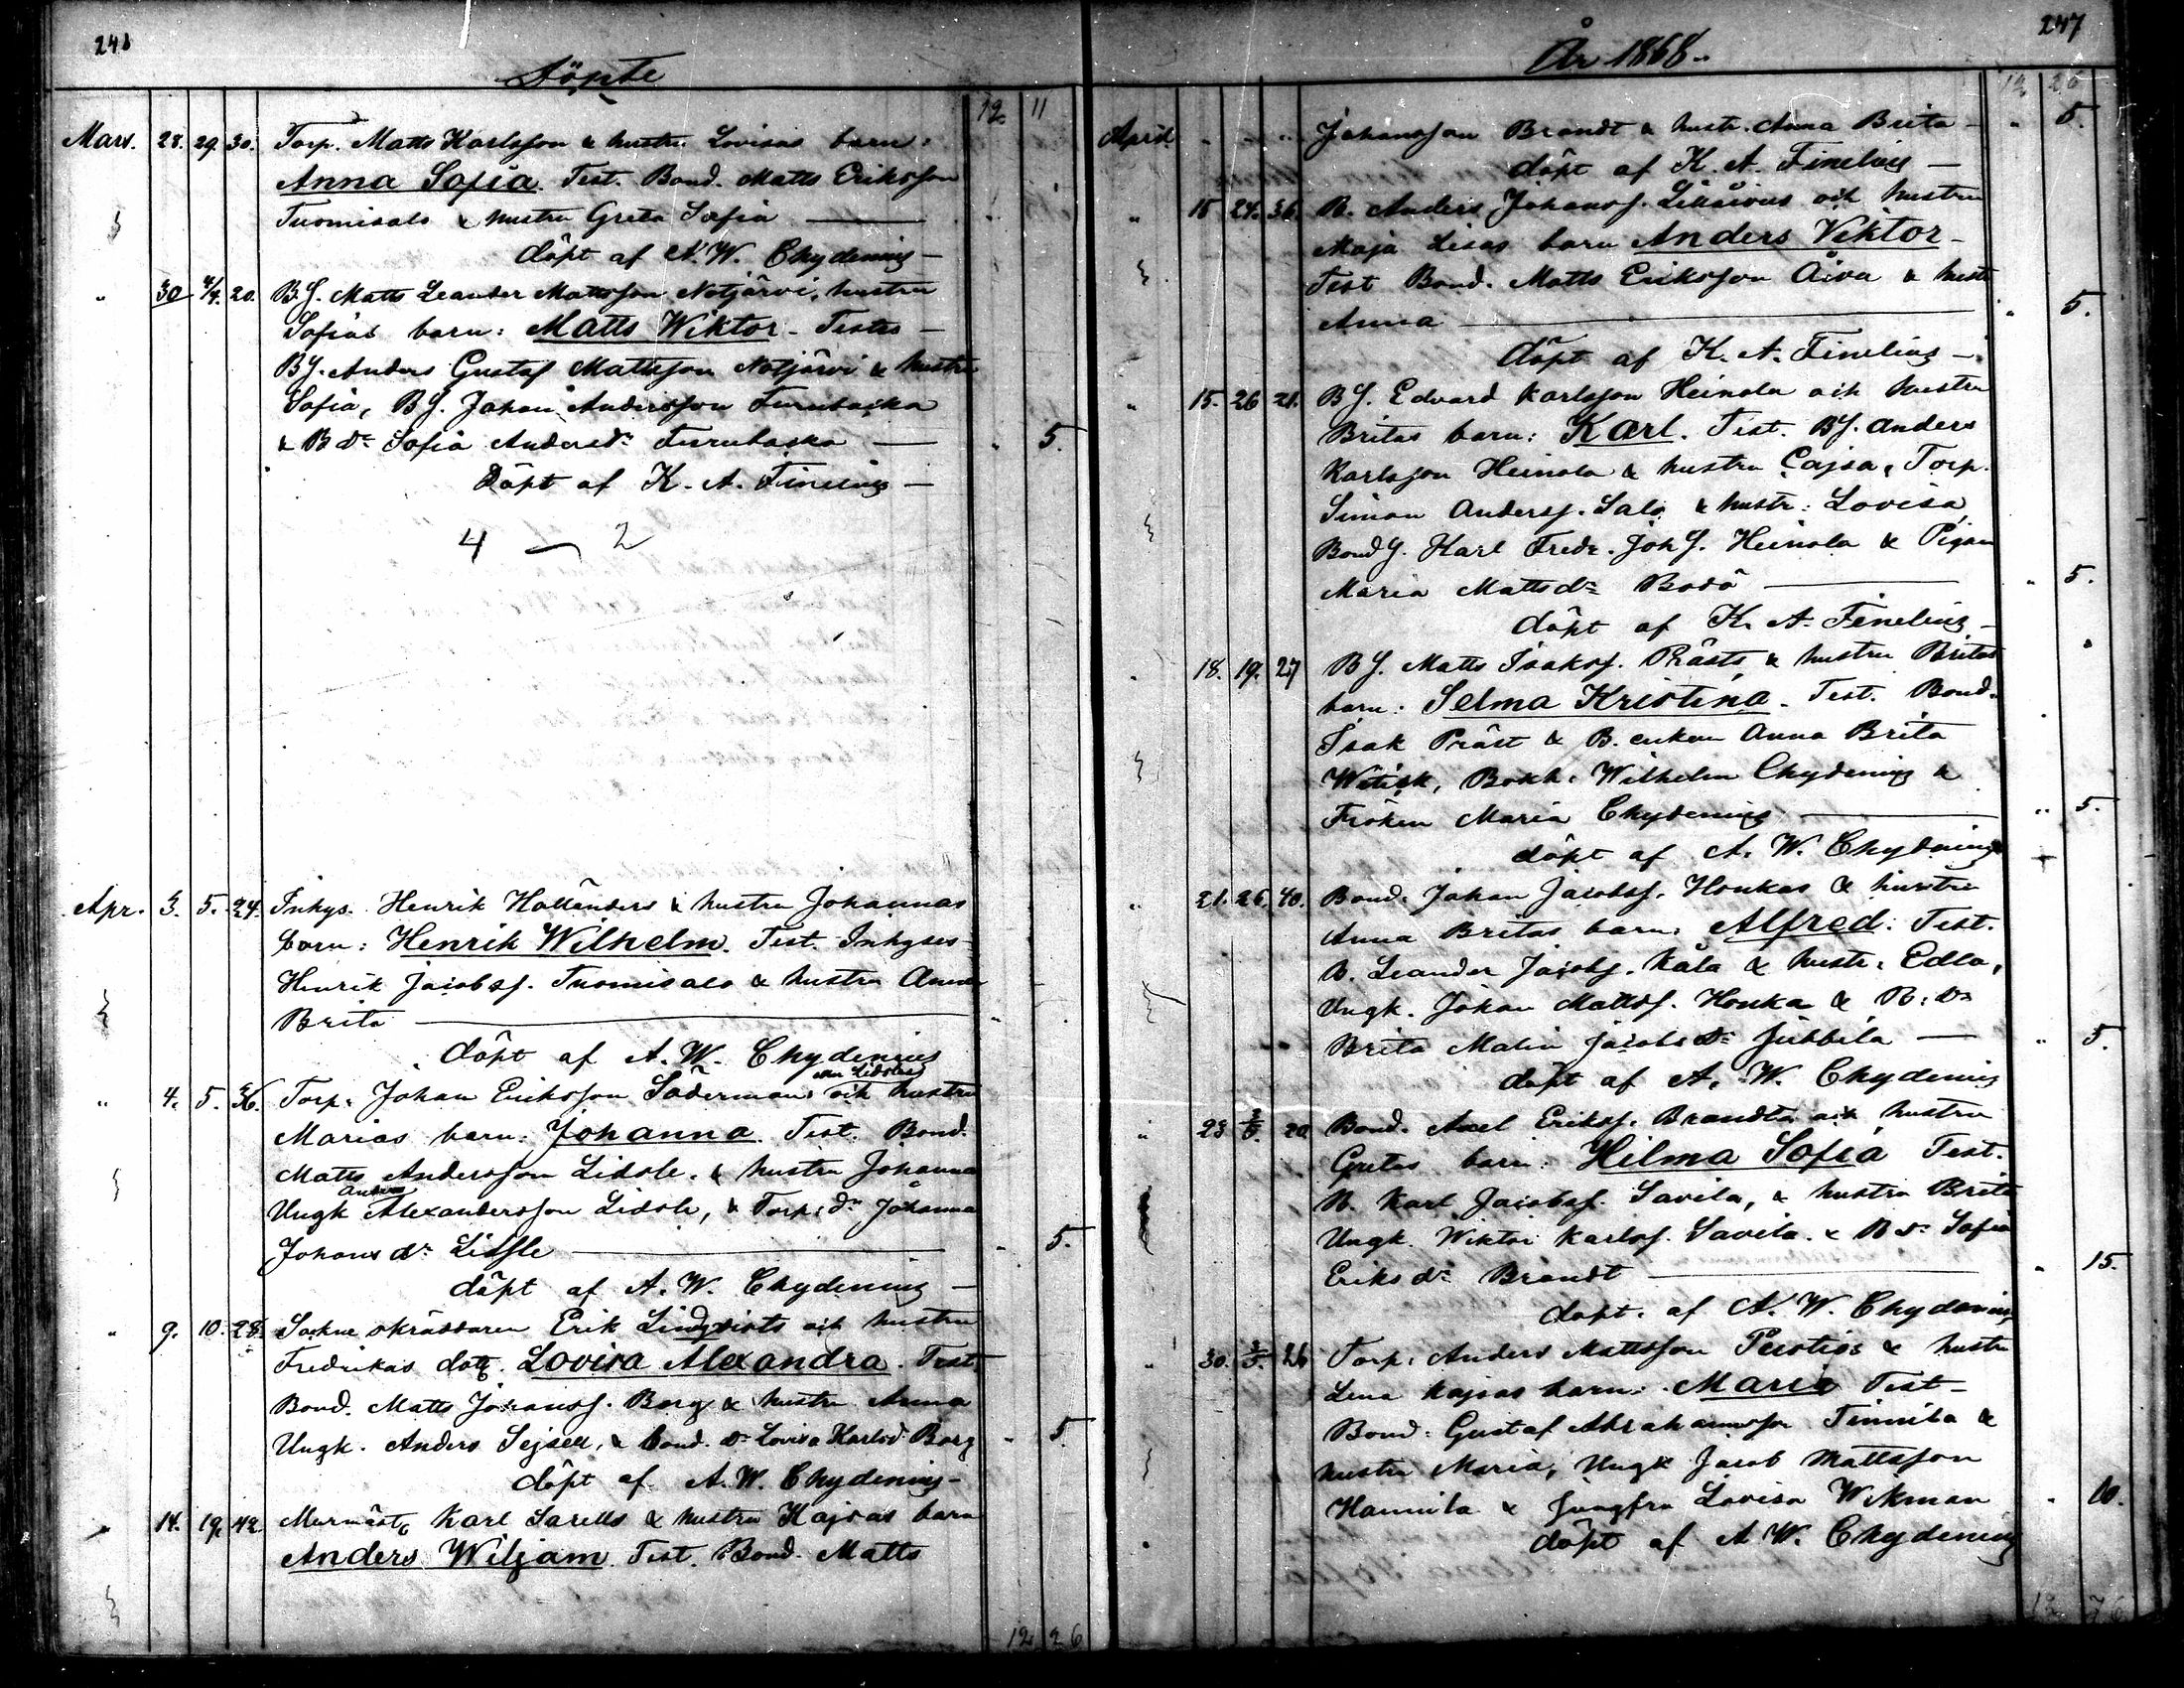 246
Döpte
12 11
Mars. 28. 29. 30. Torp. Matts Karlsson & hustru Lovisas barn:
Anna Sofia. Test. Bond. Matts Eriksson
Tuomisalo & hustru Greta Sofia
döpt af A. W. Chydenius
" 30 4/4. 20. BS. Matts Leander Mattsson Notjärvi, hustru
Sofias barn: Matts Wiktor. Testes
BS. Anders Gustaf Mattsson Notjärvi & hustru
Sofia, BS. Johan Andersson Furubacka
& B dr Sofia Andersdr Furubacka " 5.
Döpt af K. A. Finelius
4 — 2
Apr. 3. 5. 24. Inhys. Henrik Hollenders & hustru Johannas
barn: Henrik Wilhelm. Test. Inhyses
Henrik Jacobss. Tuomisalo & hustru Anna
Brita
döpt af A. W. Chydenius
" 4. 5. 36. Torp. Johan Eriksson Söderman och hustru
Marias barn: Johanna. Test. Bond.
Matts Andersson Lidsle. & hustru Johanna
Anders
Ungk Alexandersson Lidsle, & Torp: dr Johanna
Johans dr Lidsle 5.
döpt af A. W. Chydenius
" 9. 10. 28. Sockne skräddaren Erik Lindqvists och hustru
Fredrikas dotr. Lovisa Alexandra. Test.
Bond. Matts Johanss. Borg & hustru Anna
Ungk. Anders Sejsell, & bond. dr Lovisa Karlsd. Borg " 5.
döpt af A. W. Chydenius
" 14. 19. 42. Murmäst. Karl Sarells & hustru Kajsas barn
Anders Wiljam. Test. Bond. Matts
12 26
247
År 1868.
12 26
April " " " Johansson Brandt & hustr. Anna Brita " 5.
döpt af K. A. Finelius
" 15 24. 36. B. Anders Johanss. och hustru
Maja Lisas barn Anders Viktor
Test Bond. Matts Eriksson Åiva & hustr
Anna " 5.
döpt af K. A. Finelius
" 15. 26 21. BS. Edvard Karlsson Heinola och hustru
Britas barn: Karl. Test. BS. Anders
Karlsson Heinola & hustru Cajsa, Torp.
Simon Anderss. Salo & hustr: Lovisa,
Bond S. Karl Fredr. Joh S. Heinola & Pigan
Maria Mattsdr Bodö " 5.
döpt af K. A. Finelius
" 18. 19. 27 BS. Matts Isakss. Prästs & hustru Britas
barn: Selma Kristina. Test. Bond.
Isak Präst & B. enkan Anna Brita
Witick, Bokh. Wilhelm Chydenius &
Fröken Maria Chydenius " 5.
döpt af A. W. Chydenius
" 21. 26. 40. Bond. Johan Jacobss. Honkas & hustru
Anna Britas barn: Alfred: Test.
B. Leander Jacobs. Kåla & hustr. Edla,
Ungk. Johan Mattss. Honka & B: dr
Brita Malin Jacobs dr Jubbila " 5.
döpt af A. W. Chydenius
" 23 3/5. 20 Bond. Axel Erikss. Brandts och hustru
Gretas barn: Hilma Sofia Test.
B. Karl Jacobss. Savila, & hustru Brita
Ungk. Wiktor Karlss. Savila. & B dr Sofia
Eriks dr Brandt " 15.
döpt. af A. W. Chydenius
" 30. 3/5. 26 Torp. Anders Mattsson & hustru
Lena Kajsas barn: Maria Test
Bond: Gustaf Abrahamsson Finnila &
hustru Maria, Ungk Jacob Mattsson
Hannila & Jungfru Lovisa Wikman " 10.
döpt af A W. Chydenius
12 76